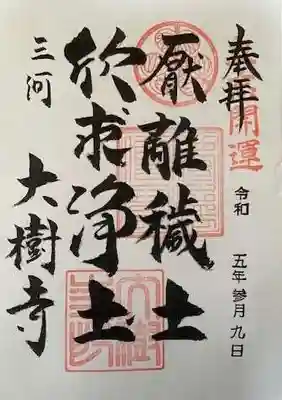 奉拝
開運
令和 五年参月九日
厭離穢土
欣求浄土
三河 大樹寺